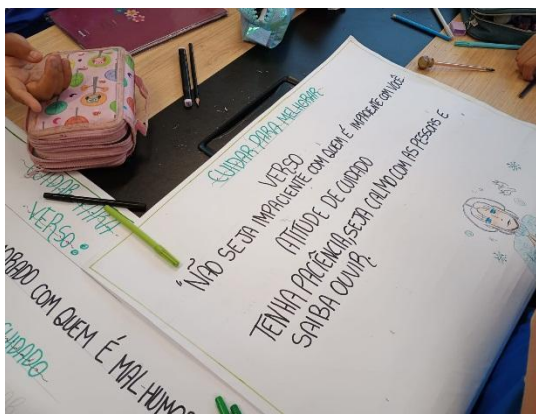 CUIDAR PARA MELHORAR
VERSO
"NÃO SEJA IMPACIENTE COM QUEM É IMPACIENTE COM VOCÊ
ATITUDE DE CUIDADO
TENHA PACIÊNCIA, SEJA CALMO COM AS PESSOAS E
SAIBA OUVIR
CUIDAR PARA
VERSO:
HORADO COM QUEM É MAL-HUMOR
CUIDADO